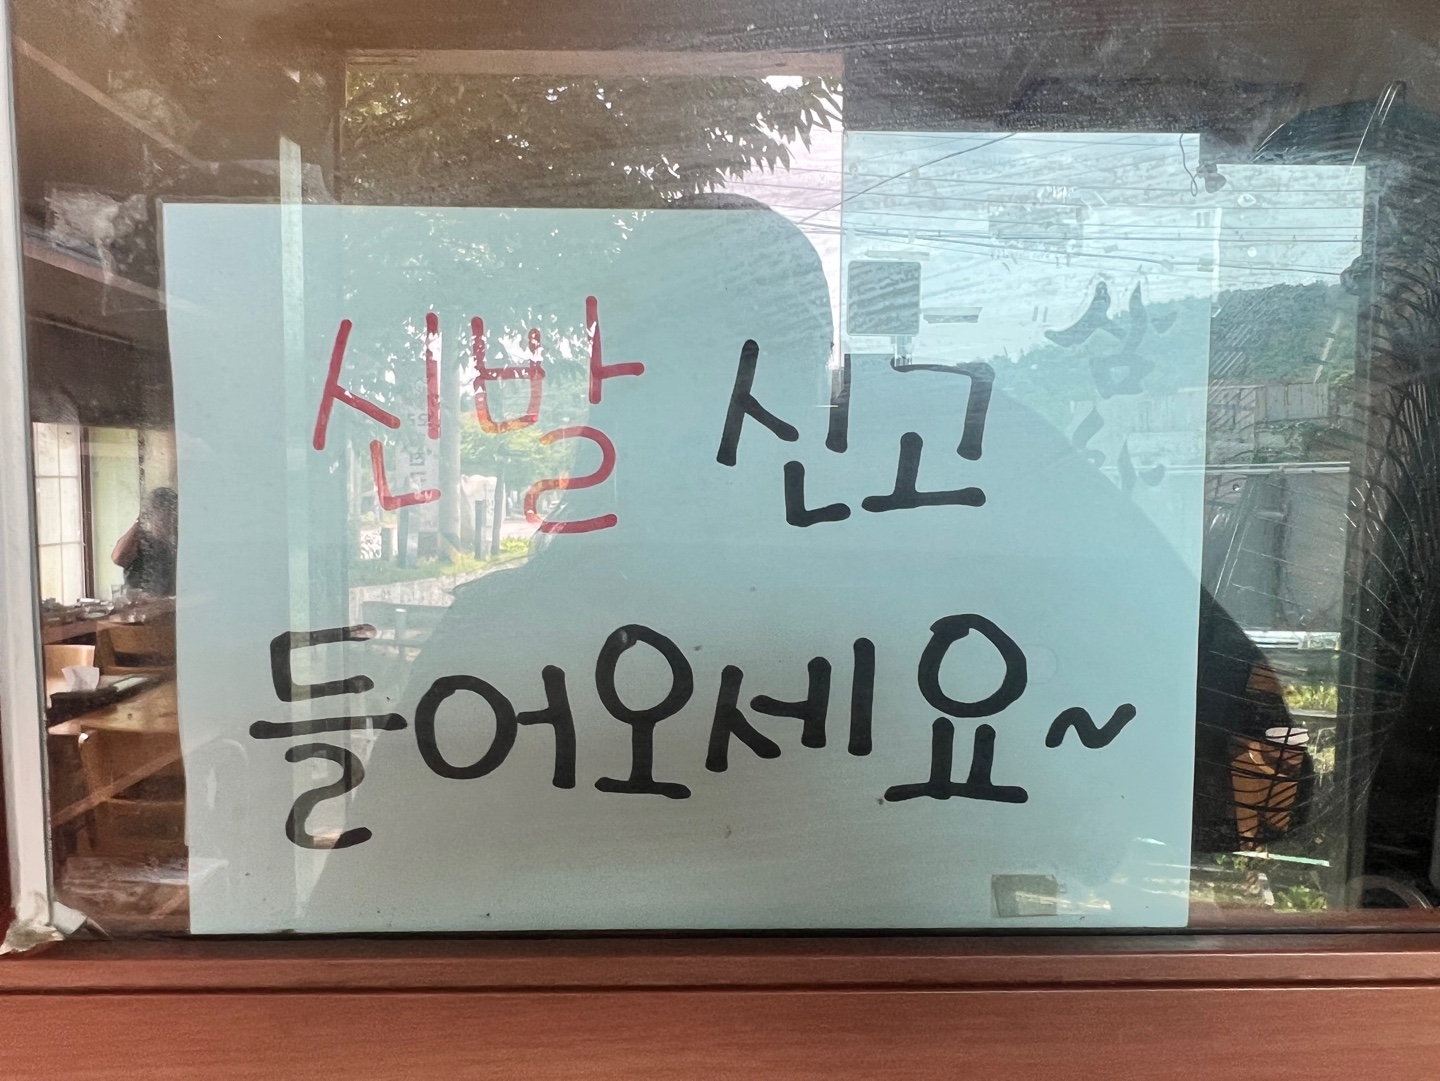 신발 신고
들어오세요~